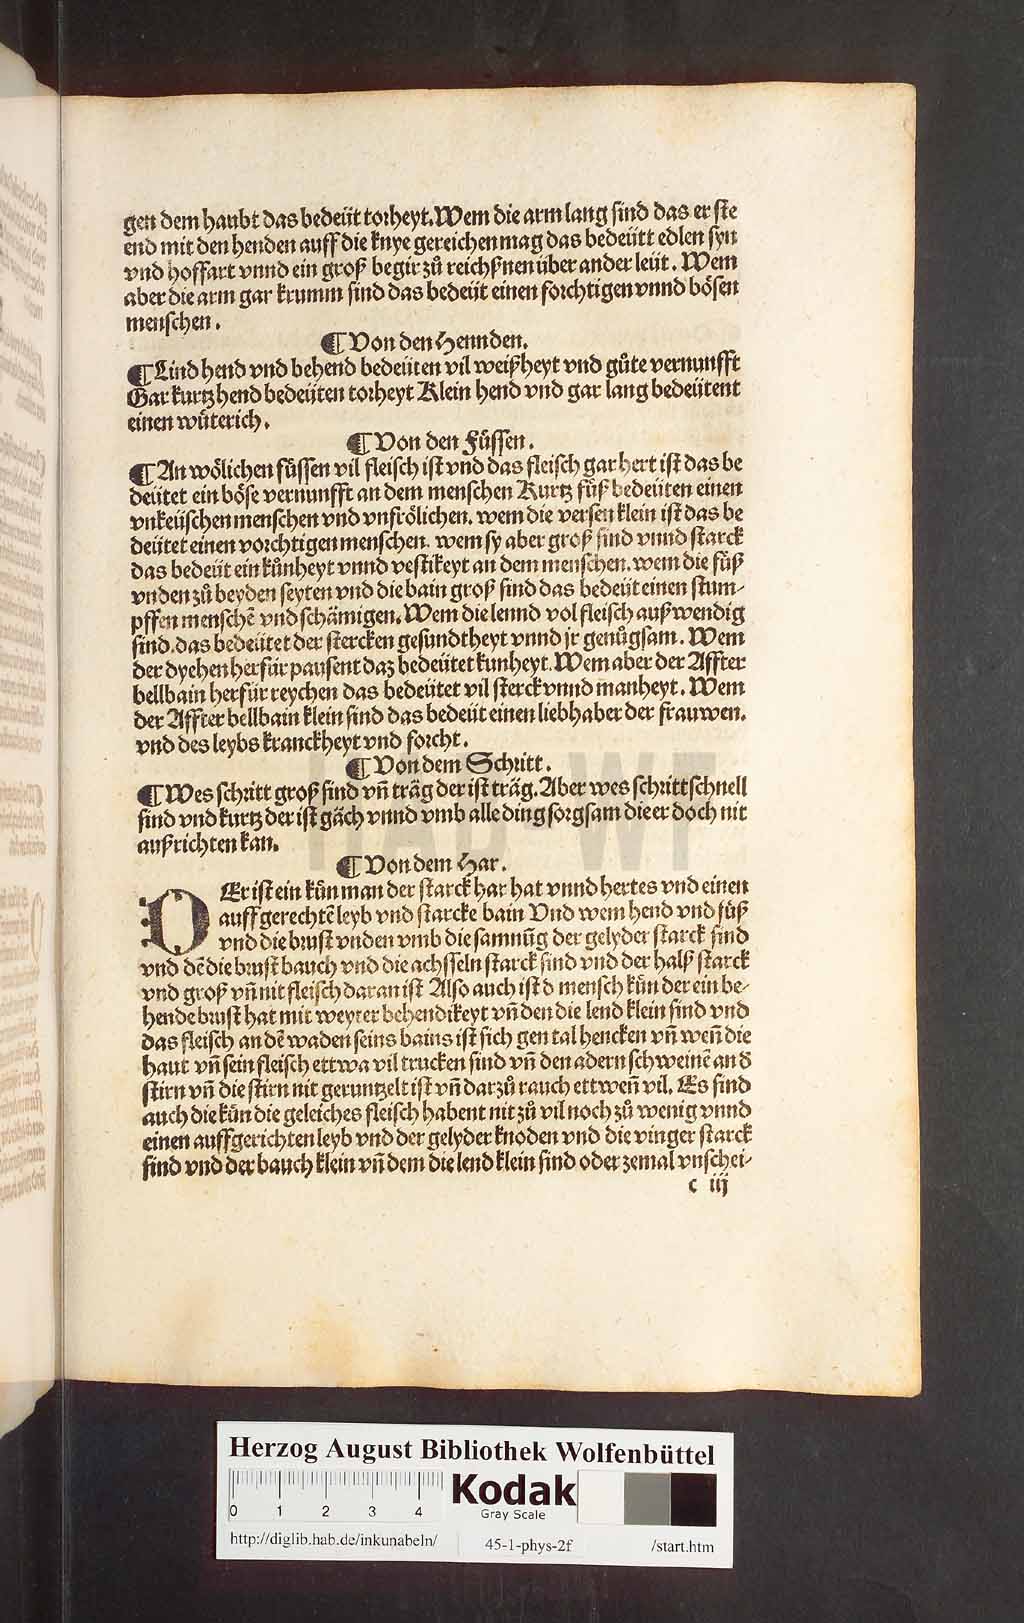 gen dem haubt das bedeüt torheyt. Wem die arm lang sind das er ste
end mit den henden auff die knye gereichen mag das bedeütt edlen syn
vnd hoffart vnnd ein groß begir zů reichßnen über ander leüt. Wem
aber die arm gar krumm sind das bedeüt einen forchtigen vnnd bösen
menschen.
¶ Von den Hennden.
¶ Lind hend vnd behend bedeüten vil weißheyt vnd gůte vernunfft
Gar kurtz hend bedeüten torheyt Klein hend vnd gar lang bedeütent
einen wüterich.
¶ Von den Füssen.
¶ An wölichen füssen vil fleisch ist vnd das fleisch gar hert ist das be
deütet ein böse vernunfft an dem menschen Kurtz füß bedeüten einen
vnkeüschen menschen vnd vnfrölichen. wem die versen klein ist das be
deütet einen vorchtigen menschen. wem sy aber groß sind vnnd starck
das bedeüt ein kůnheyt vnnd vestikeyt an dem menschen. wem die füß
vnden zů beyden seyten vnd die bain groß sind das bedeüt einen stum-
pffen menschē vnd schämigen. Wem die lennd vol fleisch außwendig
sind. das bedeütet der stercken gesundtheyt vnnd jr genůgsam. Wem
der dyehen herfür pausent daz bedeütet kunheyt. Wem aber der Affter
bellbain herfür reychen das bedeütet vil sterck vnnd manheyt. Wem
der Affter bellbain klein sind das bedeüt einen liebhaber der frauwen.
vnd des leybs kranckheyt vnd forcht.
¶ Von dem Schritt.
¶ Wes schritt groß sind vñ träg der ist träg. Aber wes schritt schnell
sind vnd kurtz der ist gäch vnnd vmb alle ding sorgsam die er doch nit
außrichten kan.
¶ Von dem Har.
DEr ist ein kůn man der starck har hat vnnd hertes vnd einen
auffgerechtē leyb vnd starcke bain Vnd wem hend vnd füß
vnd die brust vnden vmb die samnūg der gelyder starck sind
vnd dē die brust bauch vnd die achsseln starck sind vnd der halß starck
vnd groß vñ nit fleisch daran ist Also auch ist d mensch kůn der ein be-
hende brust hat mit weyter behendikeyt vñ den die lend klein sind vnd
das fleisch an dē waden seins bains ist sich gen tal hencken vñ weñ die
haut vñ sein fleisch ettwa vil trucken sind vñ den adern schweinē an d
stirn vñ die stirn nit geruntzelt ist vñ darzů rauch ettweñ vil. Es sind
auch die kůn die geleiches fleisch habent nit zů vil noch zů wenig vnnd
einen auffgerichten leyb vnd der gelyder knoden vnd die vinger starck
sind vnd der bauch klein vñ dem die lend klein sind oder zemal vnschei-
c iij
HAB-WF
Herzog August Bibliothek Wolfenbüttel
0 1 2 3 4
Kodak
Gray Scale
http://diglib.hab.de/inkunabeln/ 45-1-phys-2f /start.htm